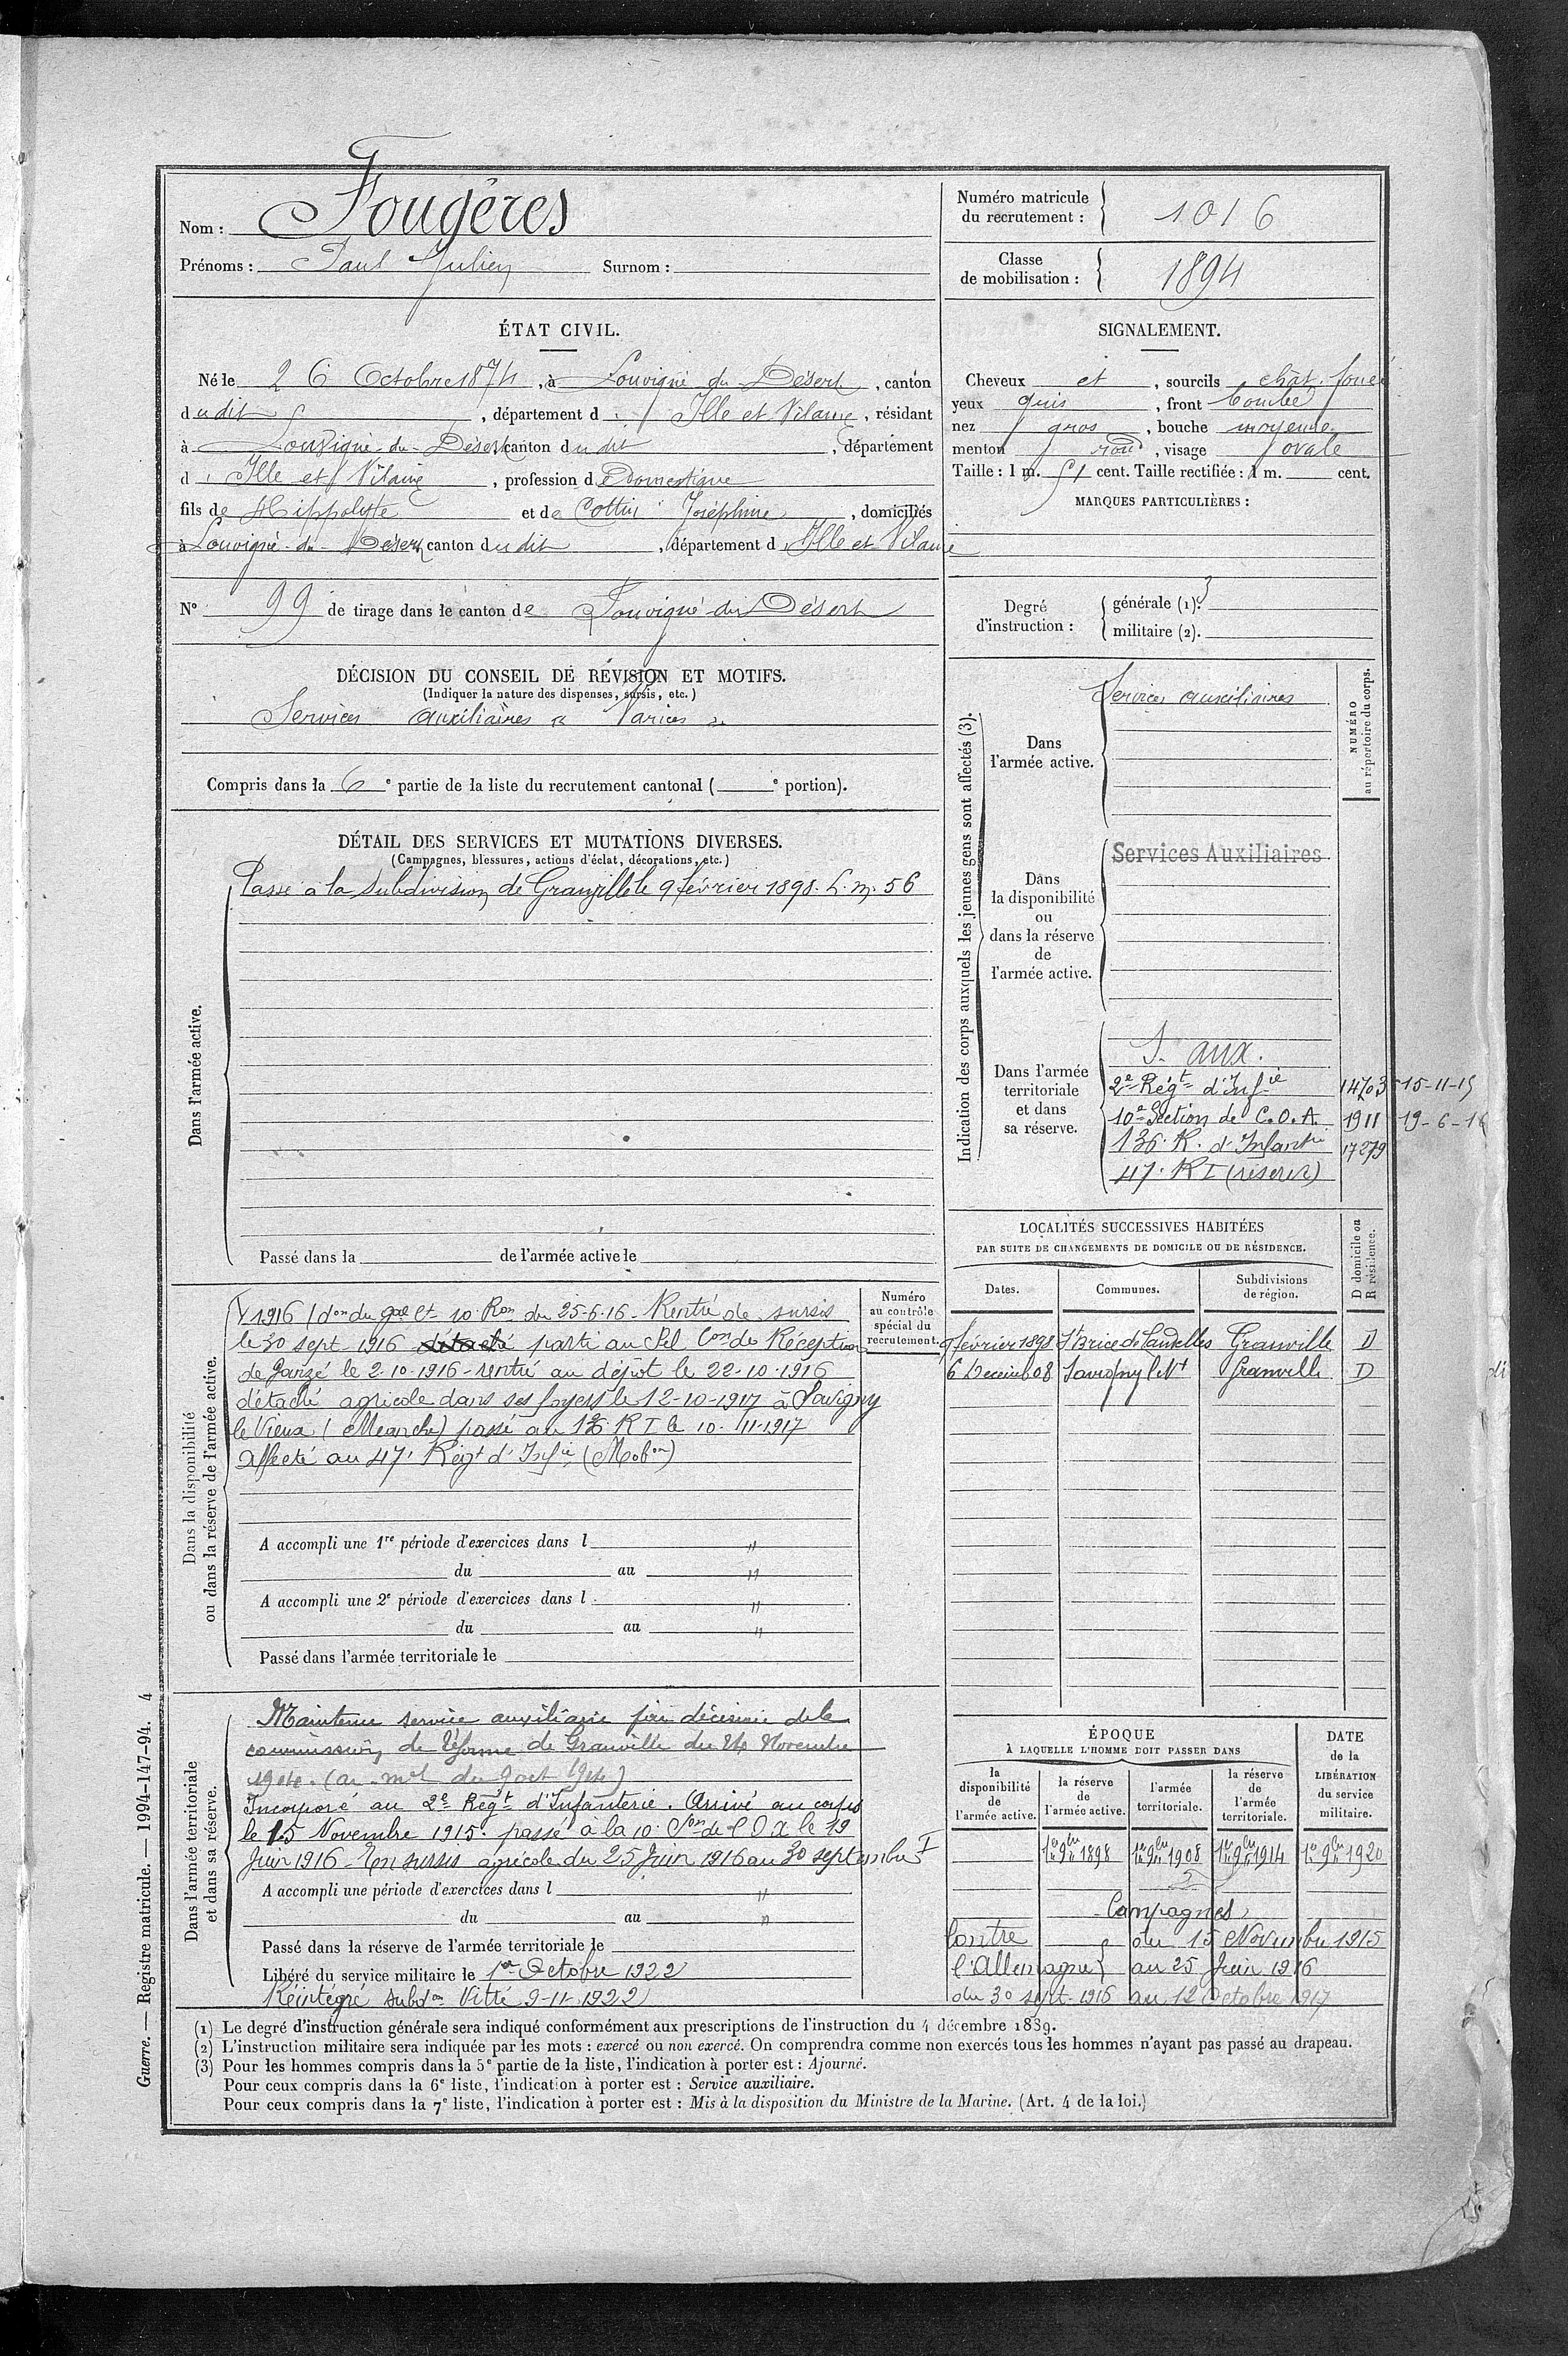 Nom : Fougères
Prénoms : Paul Julien Surnom :
Numéro matricule du recrutement : 1016
Classe de mobilisation : 1894
ÉTAT CIVIL.
Né le 26 Octobre 1874, à Louvigné du Désert, canton
dudit, département d'Ille et Vilaine, résidant
à Louvigné-du-Désert, canton dudit, département
d'Ille et Vilaine, profession de Domestique
fils de Hippolyte et de Cottin Joséphine, domiciliés
à Louvigné-du-Désert canton dudit, département d'Ille et Vilaine
N° 99 de tirage dans le canton de Louvigné du Désert
SIGNALEMENT.
Cheveux et, sourcils chât. foncé
yeux gris, front bombé
nez gros, bouche moyenne
menton rond, visage ovale
Taille : 1 m. 51 cent. Taille rectifiée : 1 m. cent.
MARQUES PARTICULIÈRES :
Degré d'instruction :
générale (1). 3
militaire (2).
DÉCISION DU CONSEIL DE RÉVISION ET MOTIFS.
(Indiquer la nature des dispenses, sursis, etc.)
Services auxiliaires « Varices »
Compris dans la 6e partie de la liste du recrutement cantonal ( e portion).
DÉTAIL DES SERVICES ET MUTATIONS DIVERSES.
(Campagnes, blessures, actions d'éclat, décorations, etc.)
Dans l'armée active.
Passé à la subdivision de Granville le 9 février 1898. L. m. 56
Passé dans la de l'armée active le
Indication des corps auxquels les jeunes gens sont affectés (3).
NUMÉRO au répertoire du corps.
Dans l'armée active.
Services auxiliaires
Dans la disponibilité ou dans la réserve de l'armée active.
Services Auxiliaires
Dans l'armée territoriale et dans sa réserve.
S. aux.
2e Régt d'Infie 14703 15-11-15
10e Section de C.O.A. 1911 19-6-16
136. R. d'Infantie 17279
47. RI (réserve)
Dans la disponibilité ou dans la réserve de l'armée active.
Numéro au contrôle spécial du recrutement.
1916 (don du gal Ct 10 Ron du 25-6-16. Rentré de sursis
le 30 sept. 1916 détaché parti au Con de Réception
de le 2-10-1916 - rentré au dépôt le 22-10-1916
détaché agricole dans ses foyers le 12-10-1917 à Savigny
le Vieux (Manche) passé au 136 RI le 10-11-1917
Affecté au 47e Régt d'Infie (Mobon)
A accompli une 1re période d'exercices dans l "
du au "
A accompli une 2e période d'exercices dans l "
du au "
Passé dans l'armée territoriale le
LOCALITÉS SUCCESSIVES HABITÉES
PAR SUITE DE CHANGEMENTS DE DOMICILE OU DE RÉSIDENCE.
Dates. Communes. Subdivisions de région. D domicile ou R résidence.
9 février 1898 St Brice de Landelles Granville D
6 Décemb 08 Savigny le Vx Granville D
Dans l'armée territoriale et dans sa réserve.
Maintenu service auxiliaire par décision de la
commission de réforme de Granville du 24 Novembre
1914. (ar. mel du 9 oct 1914)
Incorporé au 2e Régt d'Infanterie. Arrivé au corps
le 15 Novembre 1915. passé à la 10 Son de COA le 19
Juin 1916 - En sursis agricole du 25 Juin 1916 au 30 septembre
A accompli une période d'exercices dans l "
du au "
Passé dans la réserve de l'armée territoriale le
Libéré du service militaire le 1er Octobre 1922
Réintégré subdon Vitré 9-11-1922
ÉPOQUE
À LAQUELLE L'HOMME DOIT PASSER DANS
la disponibilité de l'armée active. la réserve de l'armée active. l'armée territoriale. la réserve de l'armée territoriale.
DATE de la LIBÉRATION du service militaire.
1er 9bre 1898 1er 9bre 1908 1er 9bre 1914 1er 9bre 1920
Campagnes
Contre du 15 Novembre 1915
l'Allemagne au 25 Juin 1916
du 30 sept. 1916 au 12 Octobre 1917
(1) Le degré d'instruction générale sera indiqué conformément aux prescriptions de l'instruction du 4 décembre 1889.
(2) L'instruction militaire sera indiquée par les mots : exercé ou non exercé. On comprendra comme non exercés tous les hommes n'ayant pas passé au drapeau.
(3) Pour les hommes compris dans la 5e partie de la liste, l'indication à porter est : Ajourné.
Pour ceux compris dans la 6e liste, l'indication à porter est : Service auxiliaire.
Pour ceux compris dans la 7e liste, l'indication à porter est : Mis à la disposition du Ministre de la Marine. (Art. 4 de la loi.)
Guerre. — Registre matricule. — 1994-147-94. 4